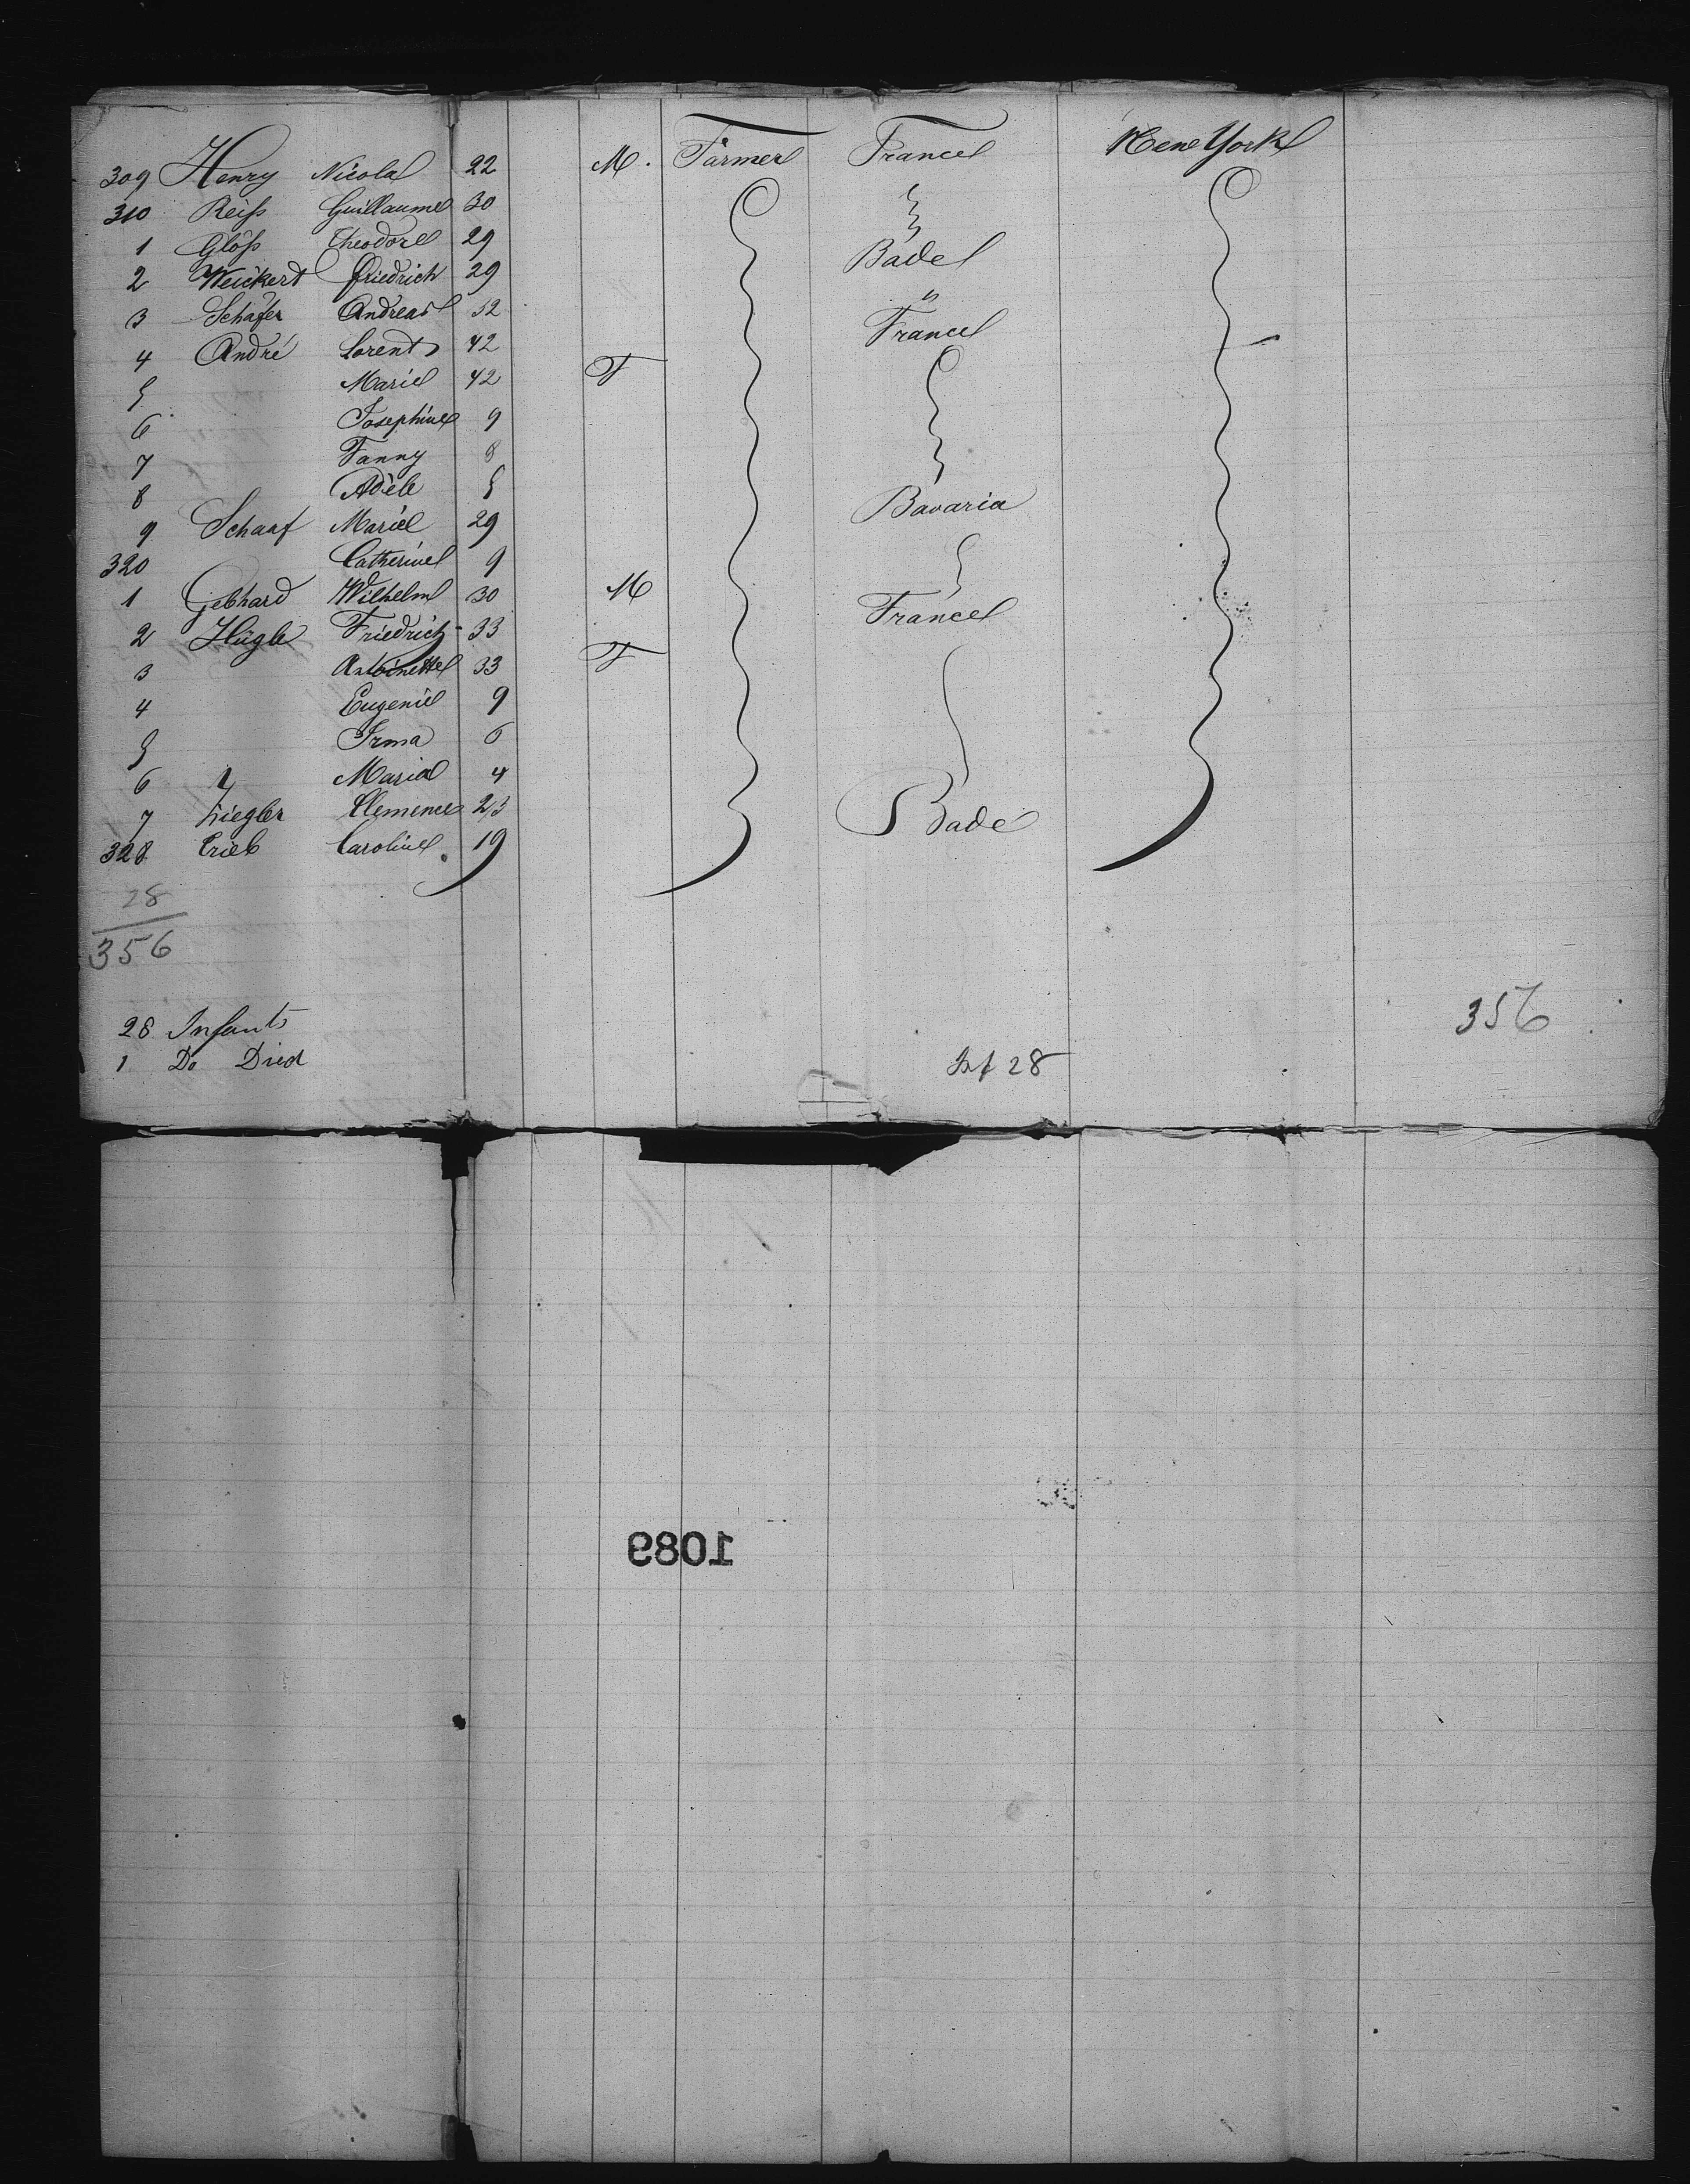 309 Henry Nicolas 22 M. Farmer France New York
310 Reiß Guillaume 30
1 Glöß Theodore 29 Bade
2 Weickert Friedrich 29 "
3 Schäfer Andreas 32 France
4 André Lorent 42
5 Marie 42 F
6 Josephine 9
7 Fanny 8
8 Adèle 5 Bavaria
9 Schaaf Marie 29
320 Catherine 9
1 Gebhard Wilhelm 30 M France
2 Hügle Friedrich 33
3 Antoinette 33 F
4 Eugenie 9
5 Irma 6
6 " Maria 4
7 Ziegler Clemence 23 Bade
328 Trieb Caroline 19
28
356
28 Infants 356
1 Do Died Inf 28
1089